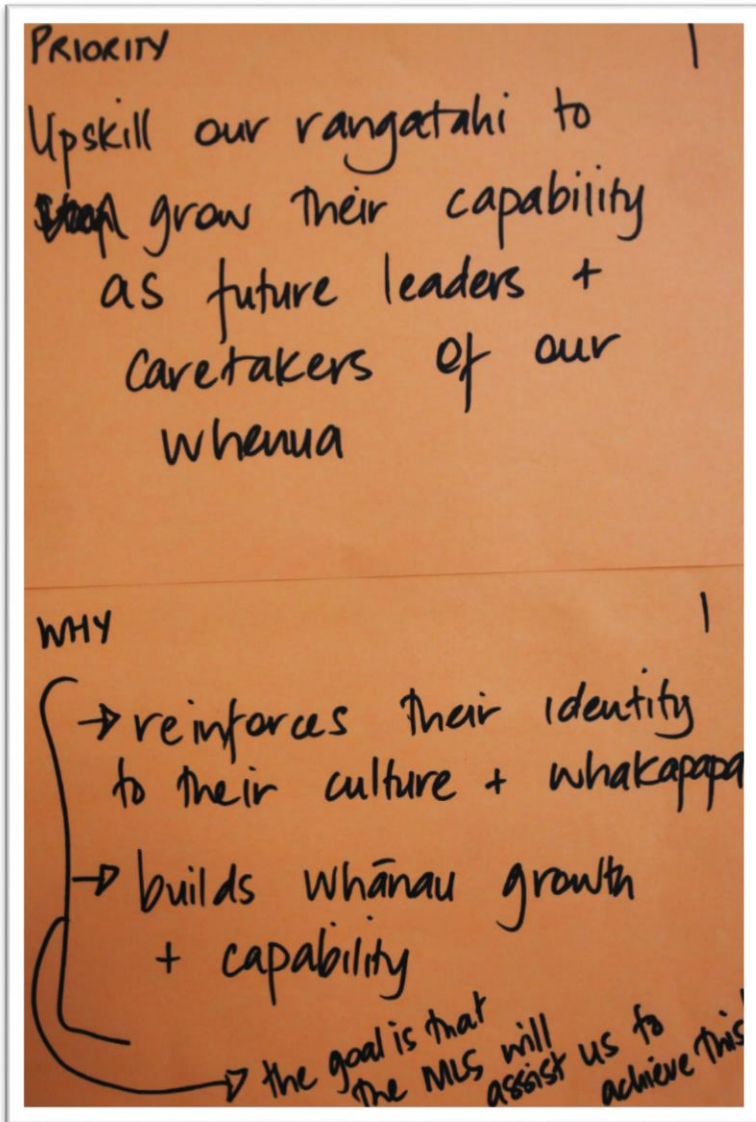 PRIORITY 1
Upskill our rangatahi to
grow their capability
as future leaders +
caretakers of our
whenua
WHY 1
→ reinforces their identity
to their culture + whakapapa
→ builds whānau growth
+ capability
→ the goal is that
the MLS will
assist us to
achieve this